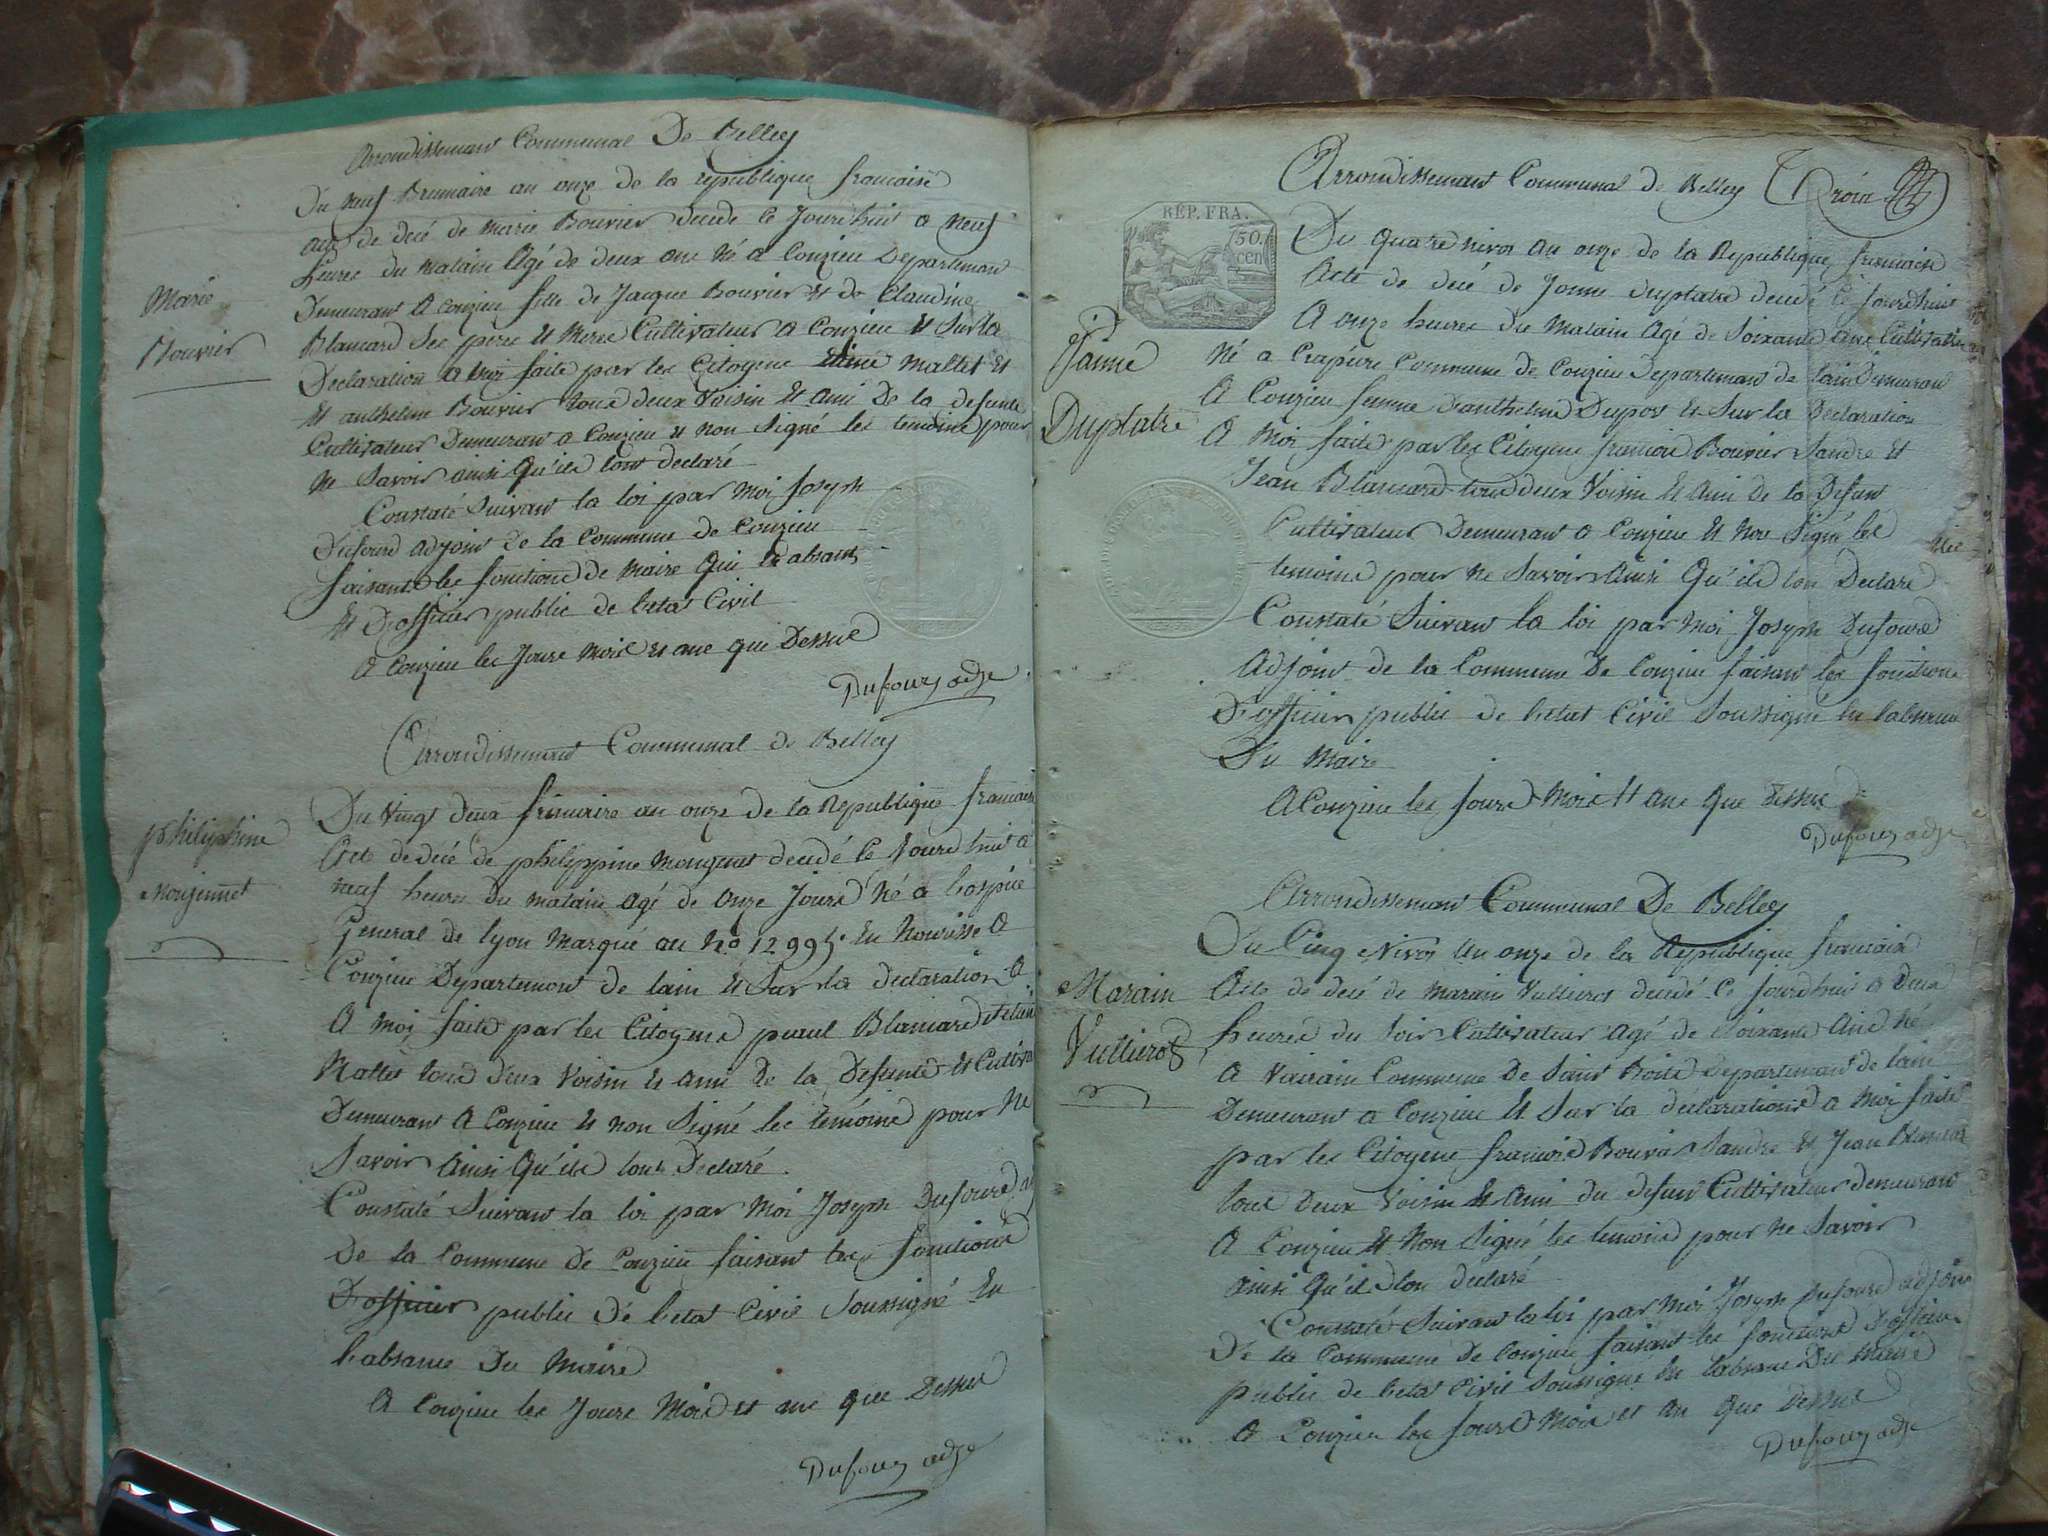 Arrondissemant Communal De Belley
Du neuf Brumaire an onze de la republique francaise
acte de decé de marie Bouvier decede le Jourdhui a neuf
heures du matain Agé de deux ans Né a Conzieu Departeman
Demeurant A conzieu fille de Jacque Bouvier et de Claudine
Blancard ses pere et Mere Cultivateur a Conzieu et Sur la
Declaration a moi faite par les Citoyens Mallet et
et anthelme Bouvier tous deux Voisin et ami De la defunte
Cultivateur Demeurans a Conzieu et non Signé les temoins pour
Ne Savoir ainsi Qu'ils lont declaré
Constaté Suivant la loi par Moi Joseph
Dufourd adjoint de la Commune de Conzieu
faisant les fonctions de Maire Qui Et absant
Et D'officier public de letat Civil
A Conzieu les Jours Mois et ans que Dessus
Dufour adj
Marie
Bouvier
Arrondissemant Communal de Belley
Du Vingt deux frimaire an onze de la Republique francaise
Acte de decé de philippine Monjenet decedé le Jourdhui a
neuf heures du matain agé de onze Jours Né a l'ospice
General de lyon Marqué au No 12995 En Nourisse A
Conzieu Departemant de lain et Sur la declaration A
A moi faite par les Citoyens Blancard et
Mallet tous deux Voisin et ami de la Defunte et Cultiva
Demeurant A Conzieu et non Signé les temoins pour Ne
Savoir Ainsi Qu'ils lont Declaré
Constaté Suivant la loi par Moi Joseph Dufourd
De la Commune de Conzieu faisant les fonctions
D'officier public de letat Civil Soussigné En
labsance Du Maire
A Conzieu les Jours Mois et ans que Dessus
Dufour adj
philiphine
Monjennet
Arrondissemant Communal de Belley Trois
RÉP. FRA.
50.
cen
Du Quatre nivos an onze de la Republique francaise
Acte de decé de Janne Duplatre decedé le Jourdhui
A onze heures du Matain Agé de Soixante ans Cultivatr
Né a Crapieu Commune de Conzieu Departemant de lain Demeurant
A Conzieu femme D'anthelme Dupont et Sur la Declaration
A Moi faite par les Citoyens francois Bouvier Sandre et
Jean Blancard tous deux Voisin et ami de la Defunt
Cultivateur Demeurant a Conzieu et Non Signé les
temoins pour Ne Savoir Ainsi Qu'ils lon Declaré
Constaté Suivant la loi par Moi Joseph Dufourd
Adjoint de la Commune De Conzieu faisant les fonctions
D'officier public de letat Civil Soussigné En labsance
Du Maire
A Conzieu les Jours Mois et ans que Dessus
Dufour adj
Janne
Duplatre
Arrondissemant Communal De Belley
Du Cinq Nivos an onze de la Republique francaise
Acte de decé de Marain Vullierot decedé le Jourdhui a Deux
heures du Soir Cultivateur agé de Soixante Ans Né
A Commune De Saint Boite Departemant de lain
Demeurant a Conzieu et Sur la declarations a Moi faite
par les Citoyens francois Bouvier Sandre et Jean Blancard
tous Deux Voisin et ami du defunt Cultivateur demeurant
A Conzieu et Non Signé les temoins pour Ne Savoir
ainsi Qu'ils lon declaré
Constaté Suivant la loi par Moi Joseph Dufourd adjoint
De la Commune De Conzieu faisant les fonctions D'officier
public de letat Civil Soussigné En labsance Du Maire
A Conzieu les Jours Mois et an que Dessus
Dufour adj
Marain
Vullierot